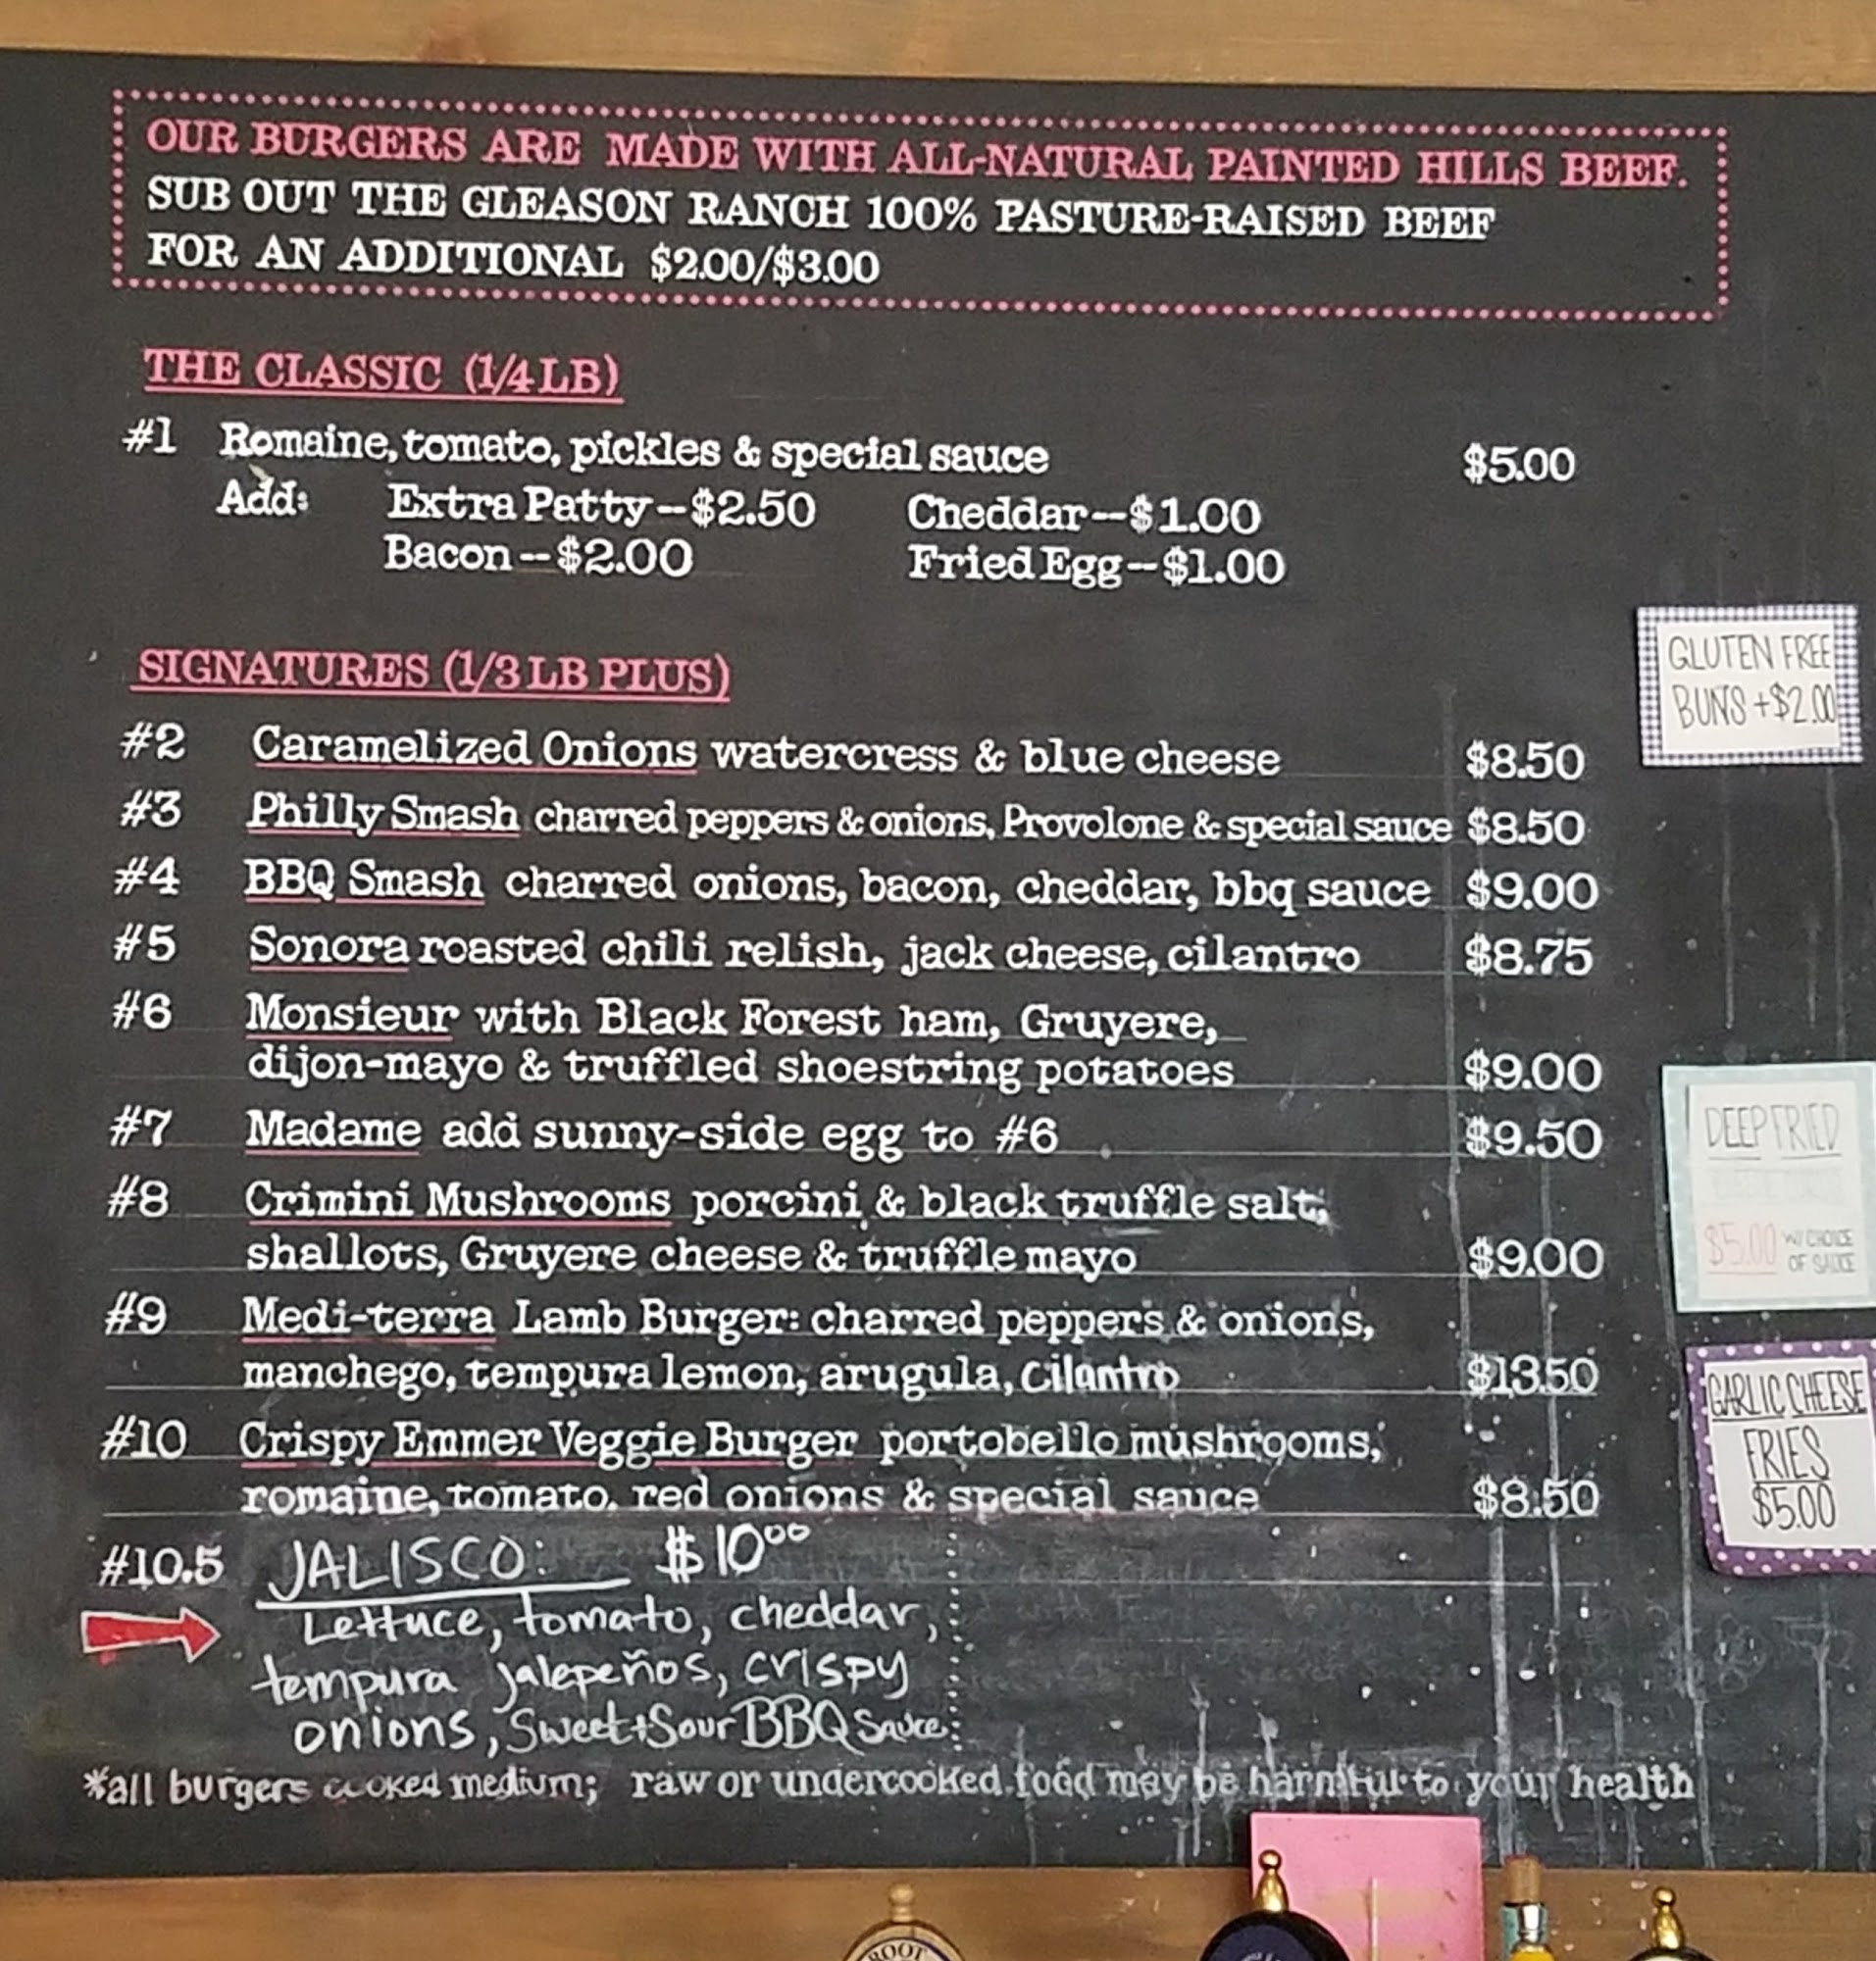 OUR BURGERS ARE MADE WITH ALL-NATURAL PAINTED HILLS BEEF.
SUB OUT THE GLEASON RANCH 100% PASTURE-RAISED BEEF
FOR AN ADDITIONAL $2.00/$3.00
THE CLASSIC (1/4 LB)
#1 Romaine, tomato, pickles & special sauce $5.00
Add: Extra Patty--$2.50 Cheddar--$1.00
Bacon--$2.00 Fried Egg--$1.00
SIGNATURES (1/3 LB PLUS)
#2 Caramelized Onions watercress & blue cheese $8.50
#3 Philly Smash charred peppers & onions, Provolone & special sauce $8.50
#4 BBQ Smash charred onions, bacon, cheddar, bbq sauce $9.00
#5 Sonora roasted chili relish, jack cheese, cilantro $8.75
#6 Monsieur with Black Forest ham, Gruyere,
dijon-mayo & truffled shoestring potatoes $9.00
#7 Madame add sunny-side egg to #6 $9.50
#8 Crimini Mushrooms porcini & black truffle salt,
shallots, Gruyere cheese & truffle mayo $9.00
#9 Medi-terra Lamb Burger: charred peppers & onions,
manchego, tempura lemon, arugula, cilantro $13.50
#10 Crispy Emmer Veggie Burger portobello mushrooms,
romaine, tomato, red onions & special sauce $8.50
#10.5 JALISCO: $10⁰⁰
Lettuce, tomato, cheddar,
tempura jalepeños, crispy
onions, Sweet+Sour BBQ Sauce
*all burgers cooked medium; raw or undercooked food may be harmful to your health
GLUTEN FREE
BUNS +$2.00
DEEP FRIED
$5.00 W/ CHOICE
OF SAUCE
GARLIC CHEESE
FRIES
$5.00
ROOT